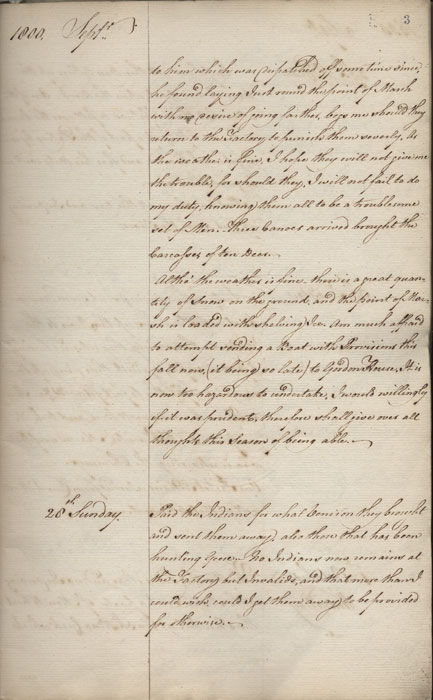 3
1800. Septr }
to him which was dispatched off some time since,
he found laying Just round the point of Marsh
with no desire of going farther, begs me should they
return to the Factory to punish them severely, As
the weather is fine, I hope they will not give me
the trouble, for should they, I will not fail to do
my duty, knowing them all to be a troublesome
set of Men. Three Canoes arrived brought the
Carcasses of ten Deer.
Altho' the weather is fine there is a great quan-
tity of Snow on the ground, and the point of Mar-
sh is loaded with shelving Ice. Am much affraid
to attempt sending a Boat with Provisions this
fall now, (it being so late) to Gordon House, It is
now too hazardous to undertake, I would willingly
if it was prudent, therefore shall give over all
thoughts this Season of being able.
28th Sunday.
Paid the Indians for what Venison they brought
and sent them away, also those that has been
hunting Geese. No Indians now remains at
the Factory but Invalids, and that more than I
could wish, could I get them away to be provided
for otherwise.